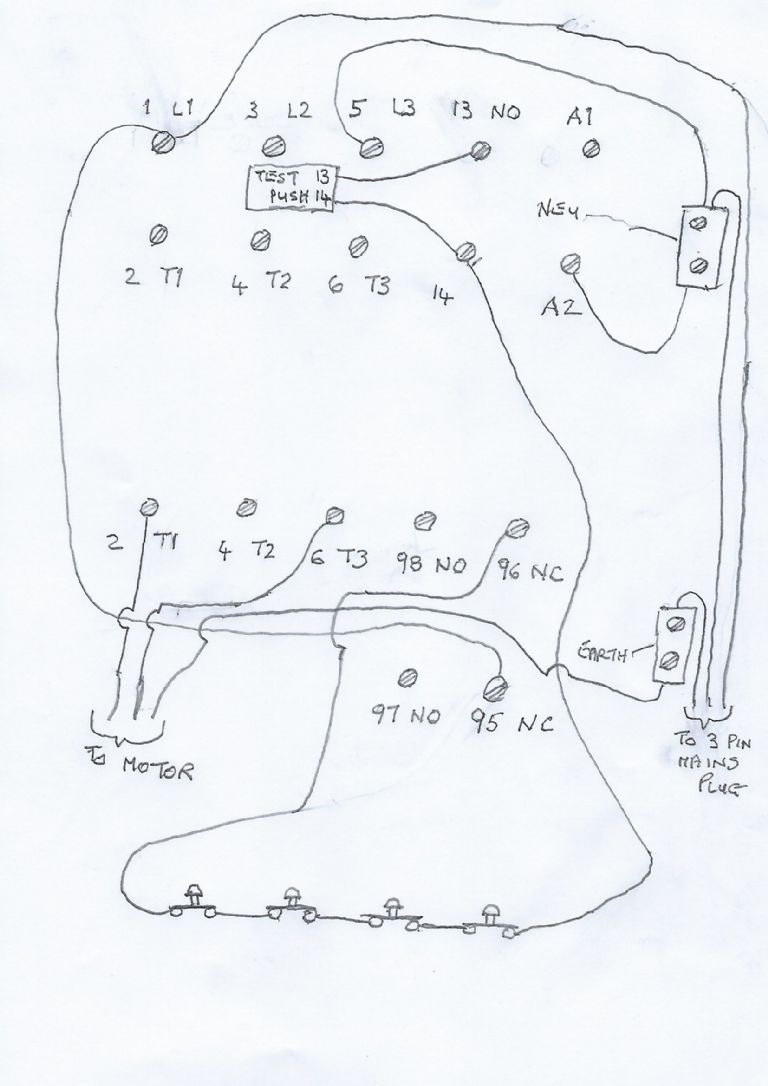 1 L1 3 L2 5 L3 13 NO A1
TEST 13
PUSH 14
NEU
2 T1 4 T2 6 T3 14 A2
2 T1 4 T2 6 T3 98 NO 96 NC
EARTH
97 NO 95 NC
TO MOTOR
TO 3 PIN
MAINS
PLUG